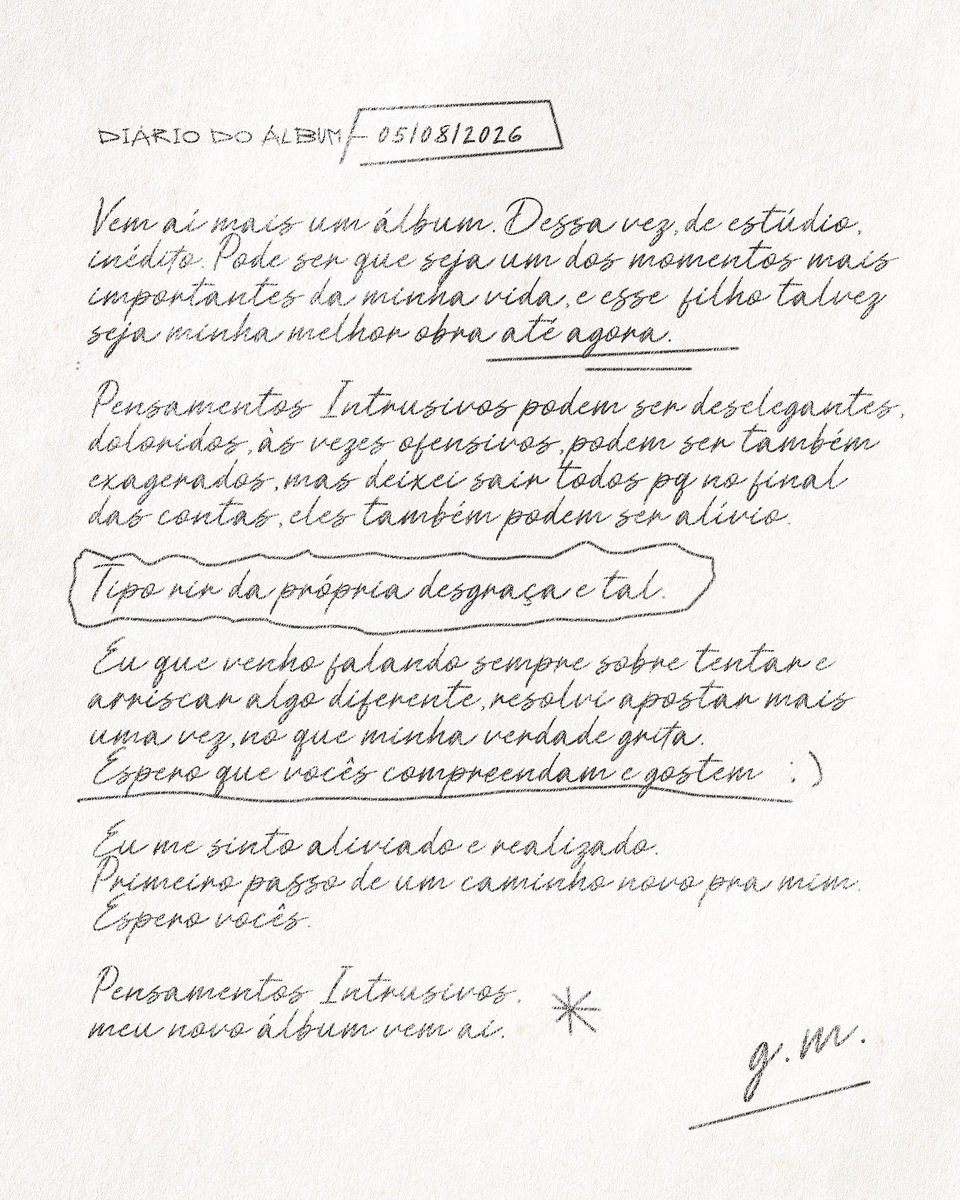 DIÁRIO DO ÁLBUM - 05/08/2026
Vem aí mais um álbum. Dessa vez, de estúdio,
inédito. Pode ser que seja um dos momentos mais
importantes da minha vida, e esse filho talvez
seja minha melhor obra até agora.
Pensamentos Intrusivos podem ser deselegantes,
doloridos, às vezes ofensivos, podem ser também
exagerados, mas deixei sair todos pq no final
das contas, eles também podem ser alívio.
Tipo rir da própria desgraça e tal.
Eu que venho falando sempre sobre tentar e
arriscar algo diferente, resolvi apostar mais
uma vez, no que minha verdade grita.
Espero que vocês compreendam e gostem :)
Eu me sinto aliviado e realizado.
Primeiro passo de um caminho novo pra mim.
Espero vocês.
Pensamentos Intrusivos,
meu novo álbum vem aí.
g.m.